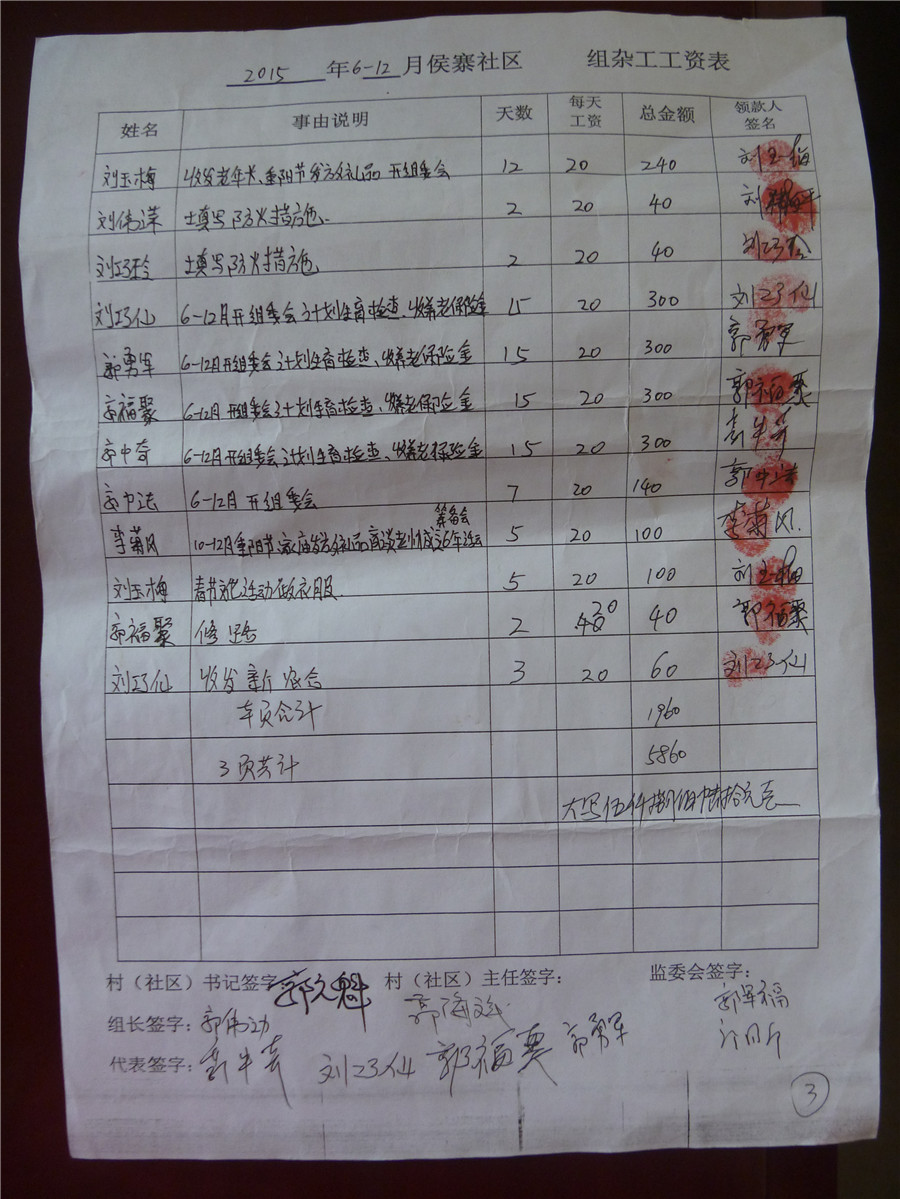 2015 年6-12月侯寨社区 组杂工工资表
姓名 事由说明 天数 每天工资 总金额 领款人签名
刘玉梅 收发老年卡、重阳节发放礼品 开组委会 12 20 240 刘玉梅
刘伟 填写防火措施 2 20 40 刘
刘巧玲 填写防火措施 2 20 40 刘巧玲
刘巧仙 6-12月开组委会计划生育检查、收养老保险金 15 20 300 刘巧仙
郭勇军 6-12月开组委会计划生育检查、收养老保险金 15 20 300 郭勇军
郭福聚 6-12月开组委会计划生育检查、收养老保险金 15 20 300 郭福聚
郭中奇 6-12月开组委会计划生育检查、收养老保险金 15 20 300
郭中法 6-12月开组委会 7 20 140 郭中法
筹备会
李菊风 10-12月重阳节、家庙发放礼品 5 20 100 李菊风.
刘玉梅 春节 活动做衣服 5 20 100 刘玉梅
郭福聚 修路 2 20 40 郭福聚
刘巧仙 收发新农合 3 20 60 刘巧仙
本页合计 1960
3页共计 5860
大写伍仟捌佰陆拾元
村（社区）书记签字: 村（社区）主任签字: 监委会签字:
郭军福
组长签字: 郭伟
代表签字: 刘巧仙 郭福 郭勇军
3